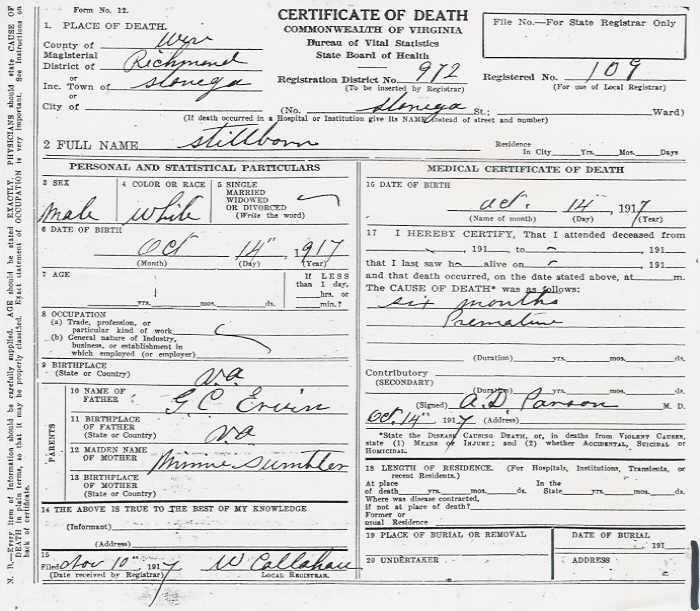 Form No. 12.
CERTIFICATE OF DEATH
COMMONWEALTH OF VIRGINIA
Bureau of Vital Statistics
State Board of Health
File No.—For State Registrar Only
1. PLACE OF DEATH.
County of Wise
Magisterial
District of Richmond
or
Inc. Town of Stonega
or
City of
Registration District No. 972
(To be inserted by Registrar)
Registered No. 109
(For use of Local Registrar)
(No. Stonega St.; Ward)
(If death occurred in a Hospital or Institution give its NAME instead of street and number)
2 FULL NAME Stillborn
Residence
In City Yrs. Mos. Days
PERSONAL AND STATISTICAL PARTICULARS
3 SEX
Male
4 COLOR OR RACE
White
5 SINGLE
MARRIED
WIDOWED
OR DIVORCED
(Write the word)
6 DATE OF BIRTH
Oct 14th, 1917
(Month) (Day) (Year)
7 AGE
yrs. mos. ds.
If LESS
than 1 day,
hrs. or
min.?
8 OCCUPATION
(a) Trade, profession, or
particular kind of work
(b) General nature of Industry,
business, or establishment in
which employed (or employer)
9 BIRTHPLACE
(State or Country) Va
PARENTS
10 NAME OF
FATHER G. C. Ervin
11 BIRTHPLACE
OF FATHER
(State or Country) Va
12 MAIDEN NAME
OF MOTHER Minnie Sumpter
13 BIRTHPLACE
OF MOTHER
(State or Country)
14 THE ABOVE IS TRUE TO THE BEST OF MY KNOWLEDGE
(Informant)
(Address)
15
Filed Nov 10th 1917 W Callahan
(Date received by Registrar) LOCAL REGISTRAR.
MEDICAL CERTIFICATE OF DEATH
16 DATE OF BIRTH
Oct. 14th 1917
(Name of month) (Day) (Year)
17 I HEREBY CERTIFY, That I attended deceased from
, 191 to , 191
that I last saw h alive on , 191
and that death occurred, on the date stated above, at m.
The CAUSE OF DEATH* was as follows:
six months
Premature
(Duration) yrs. mos. ds.
Contributory
(SECONDARY)
(Duration) yrs. mos. ds.
(Signed) A. D. Parson M. D.
Oct. 14th 1917 (Address)
*State the DISEASE CAUSING DEATH, or, in deaths from VIOLENT CAUSES,
state (1) MEANS OF INJURY; and (2) whether ACCIDENTAL, SUICIDAL or
HOMICIDAL.
18 LENGTH OF RESIDENCE. (For Hospitals, Institutions, Transients, or
recent Residents.)
At place In the
of death yrs. mos. ds. State yrs. mos. ds.
Where was disease contracted,
if not at place of death?
Former or
usual Residence
19 PLACE OF BURIAL OR REMOVAL
DATE OF BURIAL
191
20 UNDERTAKER
ADDRESS
N. B.—Every item of Information should be carefully supplied. AGE should be stated EXACTLY. PHYSICIANS should state CAUSE OF
DEATH in plain terms, so that it may be properly classified. Exact statement of OCCUPATION is very important. See Instructions on
back of certificate.